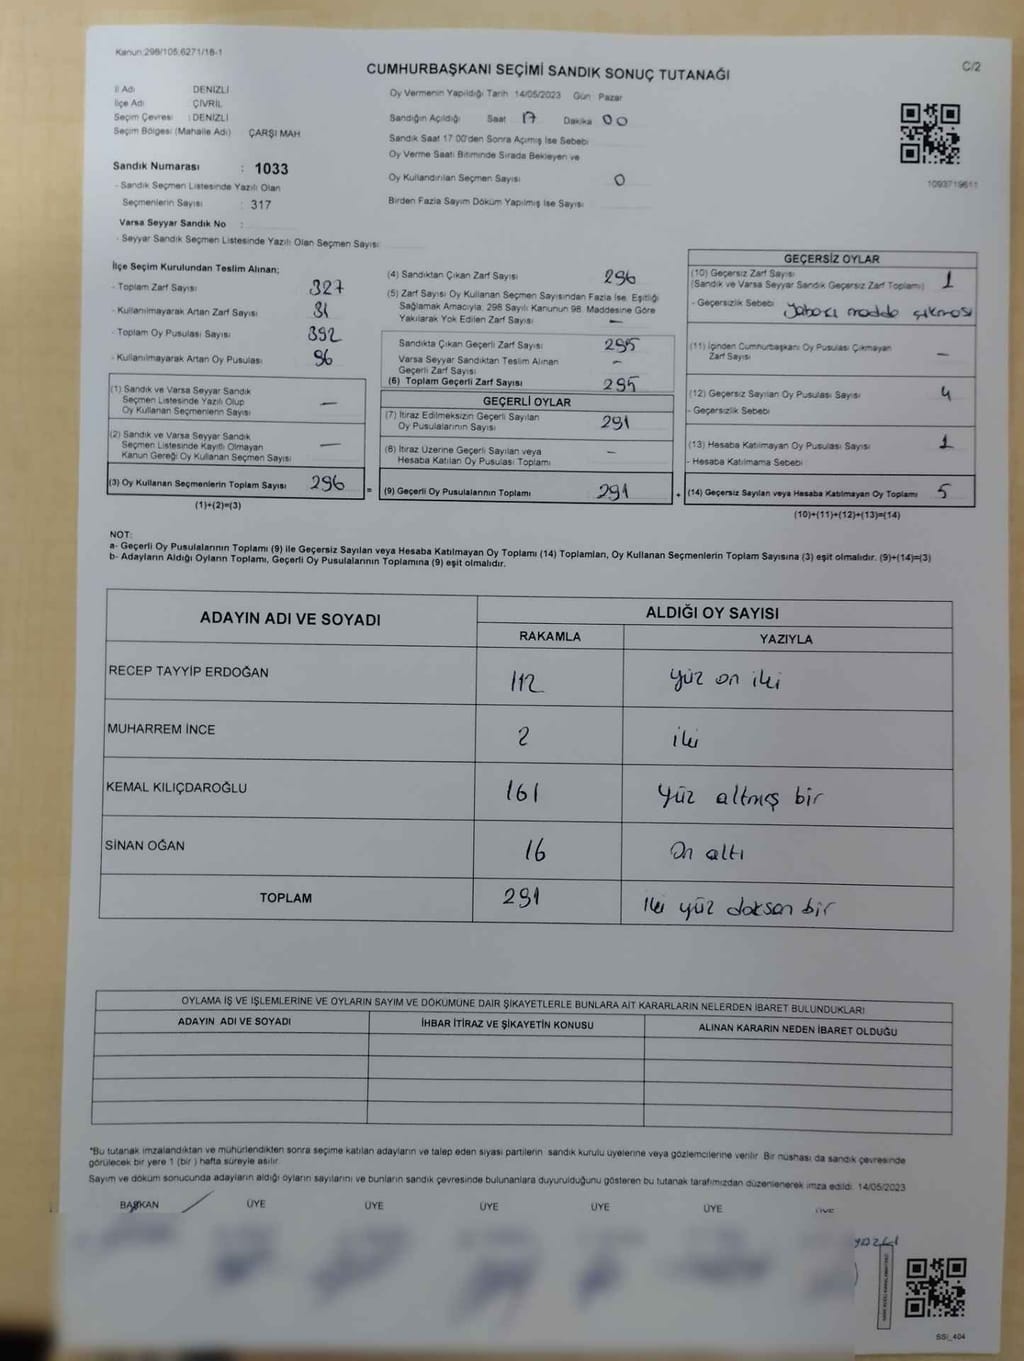 Kanun:298/105,6271/18-1
C/2
CUMHURBAŞKANI SEÇİMİ SANDIK SONUÇ TUTANAĞI
İl Adı DENİZLİ
İlçe Adı ÇİVRİL
Seçim Çevresi : DENİZLİ
Seçim Bölgesi (Mahalle Adı) ÇARŞI MAH
Sandık Numarası : 1033
- Sandık Seçmen Listesinde Yazılı Olan
Seçmenlerin Sayısı : 317
Varsa Seyyar Sandık No :
- Seyyar Sandık Seçmen Listesinde Yazılı Olan Seçmen Sayısı
Oy Vermenin Yapıldığı Tarih 14/05/2023 Gün: Pazar
Sandığın Açıldığı Saat 17 Dakika 00
Sandık Saat 17.00'den Sonra Açmış İse Sebebi
Oy Verme Saati Bitiminde Sırada Bekleyen ve
Oy Kullandırılan Seçmen Sayısı 0
Birden Fazla Sayım Döküm Yapılmış İse Sayısı
1093719611
İlçe Seçim Kurulundan Teslim Alınan;
- Toplam Zarf Sayısı 327
- Kullanılmayarak Artan Zarf Sayısı 31
- Toplam Oy Pusulası Sayısı 392
- Kullanılmayarak Artan Oy Pusulası 96
(1) Sandık ve Varsa Seyyar Sandık
Seçmen Listesinde Yazılı Olup
Oy Kullanan Seçmenlerin Sayısı —
(2) Sandık ve Varsa Seyyar Sandık
Seçmen Listesinde Kayıtlı Olmayan
Kanun Gereği Oy Kullanan Seçmen Sayısı —
(3) Oy Kullanan Seçmenlerin Toplam Sayısı 296
(1)+(2)=(3)
(4) Sandıktan Çıkan Zarf Sayısı 296
(5) Zarf Sayısı Oy Kullanan Seçmen Sayısından Fazla İse, Eşitliği
Sağlamak Amacıyla, 298 Sayılı Kanunun 98. Maddesine Göre
Yakılarak Yok Edilen Zarf Sayısı —
Sandıkta Çıkan Geçerli Zarf Sayısı 295
Varsa Seyyar Sandıktan Teslim Alınan
Geçerli Zarf Sayısı –
(6) Toplam Geçerli Zarf Sayısı 295
GEÇERLİ OYLAR
(7) İtiraz Edilmeksizin Geçerli Sayılan
Oy Pusulalarının Sayısı 291
(8) İtiraz Üzerine Geçerli Sayılan veya
Hesaba Katılan Oy Pusulası Toplamı –
= (9) Geçerli Oy Pusulalarının Toplamı 291
GEÇERSİZ OYLAR
(10) Geçersiz Zarf Sayısı
(Sandık ve Varsa Seyyar Sandık Geçersiz Zarf Toplamı) 1
- Geçersizlik Sebebi yabancı madde çıkması
(11) İçinden Cumhurbaşkanı Oy Pusulası Çıkmayan
Zarf Sayısı –
(12) Geçersiz Sayılan Oy Pusulası Sayısı 4
- Geçersizlik Sebebi
(13) Hesaba Katılmayan Oy Pusulası Sayısı 1
- Hesaba Katılmama Sebebi
+ (14) Geçersiz Sayılan veya Hesaba Katılmayan Oy Toplamı 5
(10)+(11)+(12)+(13)=(14)
NOT:
a- Geçerli Oy Pusulalarının Toplamı (9) ile Geçersiz Sayılan veya Hesaba Katılmayan Oy Toplamı (14) Toplamları, Oy Kullanan Seçmenlerin Toplam Sayısına (3) eşit olmalıdır. (9)+(14)=(3)
b- Adayların Aldığı Oyların Toplamı, Geçerli Oy Pusulalarının Toplamına (9) eşit olmalıdır.
ADAYIN ADI VE SOYADI ALDIĞI OY SAYISI
RAKAMLA YAZIYLA
RECEP TAYYİP ERDOĞAN 112 yüz on iki
MUHARREM İNCE 2 iki
KEMAL KILIÇDAROĞLU 161 Yüz altmış bir
SİNAN OĞAN 16 On altı
TOPLAM 291 iki yüz doksan bir
OYLAMA İŞ VE İŞLEMLERİNE VE OYLARIN SAYIM VE DÖKÜMÜNE DAİR ŞİKAYETLERLE BUNLARA AİT KARARLARIN NELERDEN İBARET BULUNDUKLARI
ADAYIN ADI VE SOYADI İHBAR İTİRAZ VE ŞİKAYETİN KONUSU ALINAN KARARIN NEDEN İBARET OLDUĞU
*Bu tutanak imzalandıktan ve mühürlendikten sonra seçime katılan adayların ve talep eden siyasi partilerin sandık kurulu üyelerine veya gözlemcilerine verilir. Bir nüshası da sandık çevresinde
görülecek bir yere 1 (bir) hafta süreyle asılır.
Sayım ve döküm sonucunda adayların aldığı oyların sayılarını ve bunların sandık çevresinde bulunanlara duyurulduğunu gösteren bu tutanak tarafımızdan düzenlenerek imza edildi. 14/05/2023
BAŞKAN ÜYE ÜYE ÜYE ÜYE ÜYE ÜYE
SSİ_404